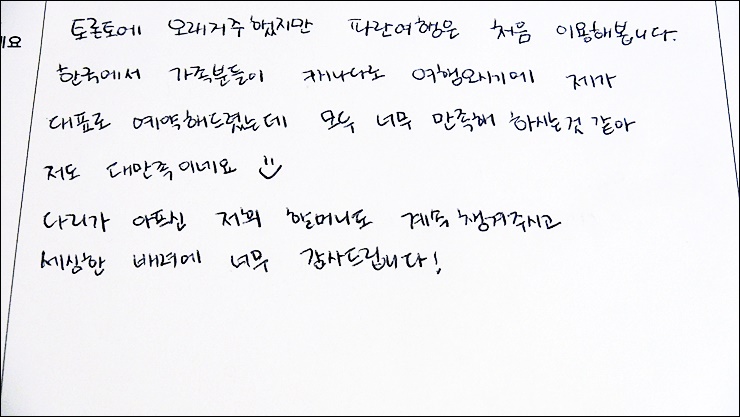 토론토에 오래거주했지만 파란여행은 처음 이용해봅니다.
한국에서 가족분들이 캐나다로 여행오시기에 제가
대표로 예약해드렸는데 모두 너무 만족해 하시는것 같아
저도 대만족이네요
다리가 아프신 저희 할머니도 계속 챙겨주시고
세심한 배려에 너무 감사드립니다!